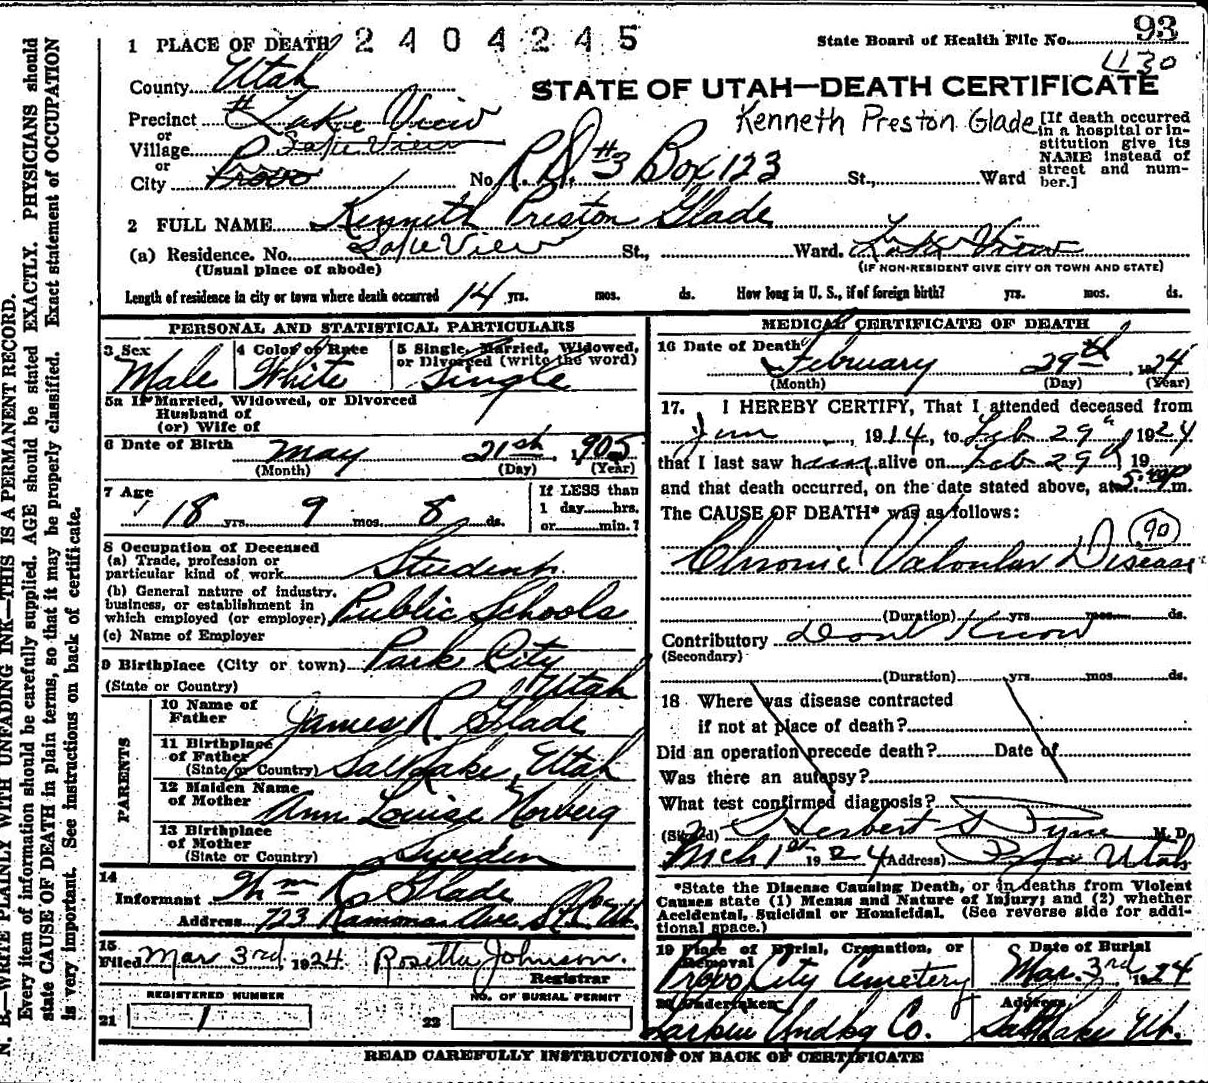 93
1 PLACE OF DEATH 2404245 State Board of Health File No.
430
County Utah STATE OF UTAH—DEATH CERTIFICATE
Precinct Lake View Kenneth Preston Glade
or
Village Lake View
or
City Provo No. R.D. #3 Box 123 St., Ward
[If death occurred
in a hospital or in-
stitution give its
NAME instead of
street and num-
ber.]
2 FULL NAME Kenneth Preston Glade
(a) Residence. No. Lake View St., Ward. Lake View
(Usual place of abode) (IF NON-RESIDENT GIVE CITY OR TOWN AND STATE)
Length of residence in city or town where death occurred 14 yrs. mos. ds. How long in U. S., if of foreign birth? yrs. mos. ds.
PERSONAL AND STATISTICAL PARTICULARS
3 Sex 4 Color or Race 5 Single, Married, Widowed,
or Divorced (write the word)
Male White Single
5a If Married, Widowed, or Divorced
Husband of
(or) Wife of
6 Date of Birth May 21st, 1905
(Month) (Day) (Year)
7 Age If LESS than
18 yrs. 9 mos. 8 ds. 1 day hrs.
or min.?
8 Occupation of Deceased
(a) Trade, profession or
particular kind of work Student
(b) General nature of industry,
business, or establishment in
which employed (or employer) Public Schools
(c) Name of Employer
9 Birthplace (City or town) Park City
(State or Country) Utah
PARENTS
10 Name of
Father James R. Glade
11 Birthplace
of Father
(State or Country) Salt Lake, Utah
12 Maiden Name
of Mother Ann Louise Norberg
13 Birthplace
of Mother
(State or Country) Sweden
14
Informant R Glade
Address 723 Ramona Ave
15
Filed Mar 3rd, 1924. Rosetta Johnson.
Registrar
REGISTERED NUMBER NO. OF BURIAL PERMIT
21 1 22
MEDICAL CERTIFICATE OF DEATH
16 Date of Death
February 29th, 1924
(Month) (Day) (Year)
17. I HEREBY CERTIFY, That I attended deceased from
1914, to Feb 29th, 1924
that I last saw him alive on Feb 29th, 19
and that death occurred, on the date stated above, at m.
The CAUSE OF DEATH* was as follows:
90
Chronic Valvular Disease
(Duration) yrs. mos. ds.
Contributory Dont Know
(Secondary)
(Duration) yrs. mos. ds.
18 Where was disease contracted
if not at place of death?
Did an operation precede death? Date of
Was there an autopsy?
What test confirmed diagnosis?
(Signed) Herbert G Pyne M. D.
Mch 1st 1924 (Address) Utah
*State the Disease Causing Death, or in deaths from Violent
Causes state (1) Means and Nature of Injury; and (2) whether
Accidental, Suicidal or Homicidal. (See reverse side for addi-
tional space.)
19 Place of Burial, Cremation, or Date of Burial
Removal
Provo City Cemetery Mar. 3rd 1924
20 Undertaker Address
Larkin Undkg Co. Salt Lake Ut.
READ CAREFULLY INSTRUCTIONS ON BACK OF CERTIFICATE
N. B.—WRITE PLAINLY WITH UNFADING INK—THIS IS A PERMANENT RECORD.
Every item of information should be carefully supplied. AGE should be stated EXACTLY. PHYSICIANS should
state CAUSE OF DEATH in plain terms, so that it may be properly classified. Exact statement of OCCUPATION
is very important. See instructions on back of certificate.